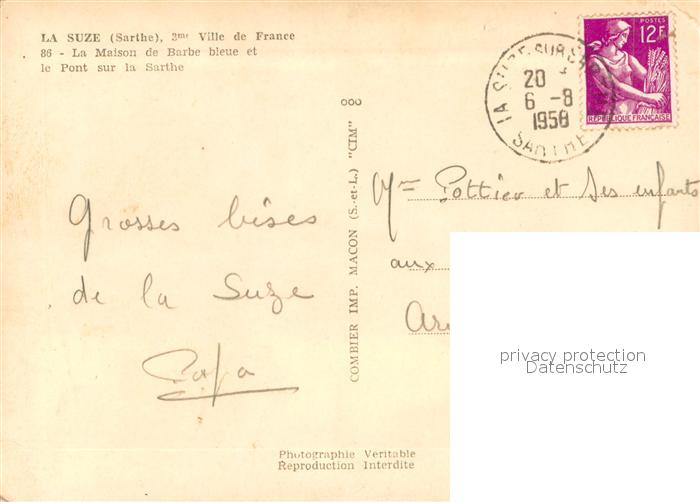 LA SUZE (Sarthe), 3me Ville de France
86 - La Maison de Barbe bleue et
le Pont sur la Sarthe
POSTES
12F
REPUBLIQUE FRANÇAISE
LA SUZE-SUR-SARTHE
20
6 -8
1958
SARTHE
COMBIER IMP. MACON (S.-et-L.) "CIM"
Grosses bises
de la Suze
Papa
Mme Pottier et ses enfants
aux
privacy protection
Datenschutz
Photographie Veritable
Reproduction Interdite